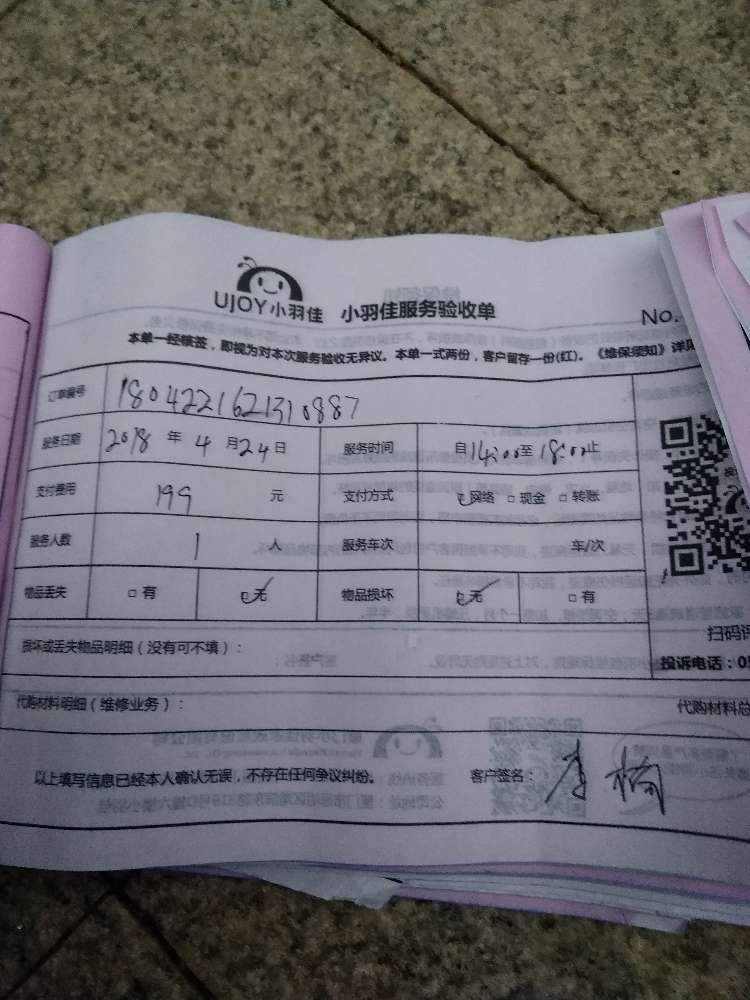 UJOY小羽佳 小羽佳服务验收单
No.
本单一经核签，即视为对本次服务验收无异议。本单一式两份，客户留存一份(红)。《维保须知》详见
订单编号 1804221621310887
服务日期 2018 年 4 月 24 日 服务时间 自 14:00 至 18:00 止
支付费用 199 元 支付方式 ☑网络 □现金 □转账
服务人数 1 人 服务车次 车/次
物品丢失 □有 ☑无 物品损坏 ☑无 □有
扫码评
损坏或丢失物品明细（没有可不填）：
投诉电话：05
代购材料明细（维修业务）： 代购材料总
以上填写信息已经本人确认无误，不存在任何争议纠纷。 客户签名：李楠